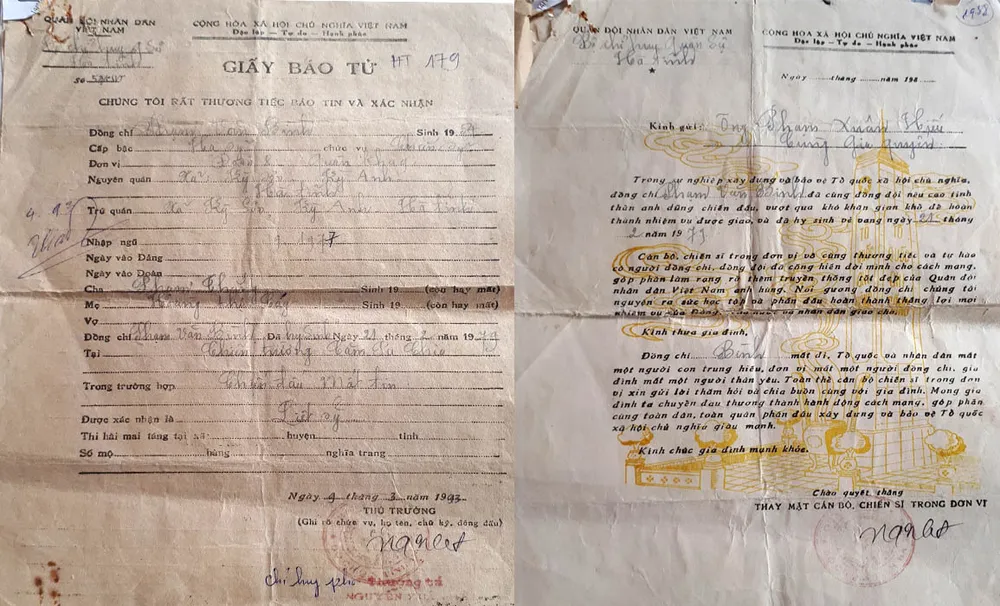 QUÂN ĐỘI NHÂN DÂN
VIỆT NAM
Hà Tĩnh
Số
CỘNG HÒA XÃ HỘI CHỦ NGHĨA VIỆT NAM
Độc lập — Tự do — Hạnh phúc
GIẤY BÁO TỬ HT 179
CHÚNG TÔI RẤT THƯƠNG TIẾC BÁO TIN VÀ XÁC NHẬN
Đồng chí Phạm Văn Bình Sinh 19
Cấp bậc Hạ sỹ chức vụ Chiến sỹ
Đơn vị
Nguyên quán Kỳ Anh
Hà Tĩnh
Trú quán Xã Kỳ Anh Hà Tĩnh
Nhập ngũ 1977
Ngày vào Đảng
Ngày vào Đoàn
Cha Phạm Sinh 19 (còn hay mất)
Mẹ Sinh 19 (còn hay mất)
Vợ
Đồng chí Phạm Văn Bình Đã hy sinh Ngày 21 tháng 2 năm 1979
Tại Chiến trường
Trong trường hợp Chiến đấu mất tin
Được xác nhận là Liệt sỹ
Thi hài mai táng tại xã: huyện tỉnh
Số mộ hàng nghĩa trang
Ngày 9 tháng 3 năm 1993
THỦ TRƯỞNG
(Ghi rõ chức vụ, họ tên, chữ ký, đóng dấu)
chỉ huy phó Thượng tá
NGUYỄN
1982
QUÂN ĐỘI NHÂN DÂN VIỆT NAM
Bộ chỉ huy Quân sự
Hà Tĩnh
CỘNG HÒA XÃ HỘI CHỦ NGHĨA VIỆT NAM
Độc lập — Tự do — Hạnh phúc
Ngày tháng năm 198
Kính gửi: Ông Phạm Xuân Hiếu
Cùng gia quyến
Trong sự nghiệp xây dựng và bảo vệ Tổ quốc xã hội chủ nghĩa,
đồng chí Phạm Văn Bình đã cùng đồng đội nêu cao tinh
thần anh dũng chiến đấu, vượt qua khó khăn gian khổ đã hoàn
thành nhiệm vụ được giao, và đã hy sinh vẻ vang ngày 21 tháng
2 năm 1979
Cán bộ, chiến sĩ trong đơn vị vô cùng thương tiếc và tự hào
có người đồng chí, đồng đội đã cống hiến đời mình cho cách mạng,
góp phần làm rạng rỡ thêm truyền thống tốt đẹp của Quân đội
nhân dân Việt Nam anh hùng. Noi gương đồng chí chúng tôi
nguyện ra sức học tập và phấn đấu hoàn thành thắng lợi mọi
nhiệm vụ của Đảng, của nước và nhân dân giao cho.
Kính thưa gia đình,
Đồng chí Bình mất đi, Tổ quốc và nhân dân mất
một người con trung hiếu, đơn vị mất một người đồng chí, gia
đình mất một người thân yêu. Toàn thể cán bộ chiến sĩ trong đơn
vị xin gửi lời thăm hỏi và chia buồn cùng với gia đình. Mong gia
đình ta chuyển đau thương thành hành động cách mạng, góp phần
cùng toàn dân, toàn quân phấn đấu xây dựng và bảo vệ Tổ quốc
xã hội chủ nghĩa giàu mạnh.
Kính chúc gia đình mạnh khỏe.
Chào quyết thắng
THAY MẶT CÁN BỘ, CHIẾN SĨ TRONG ĐƠN VỊ